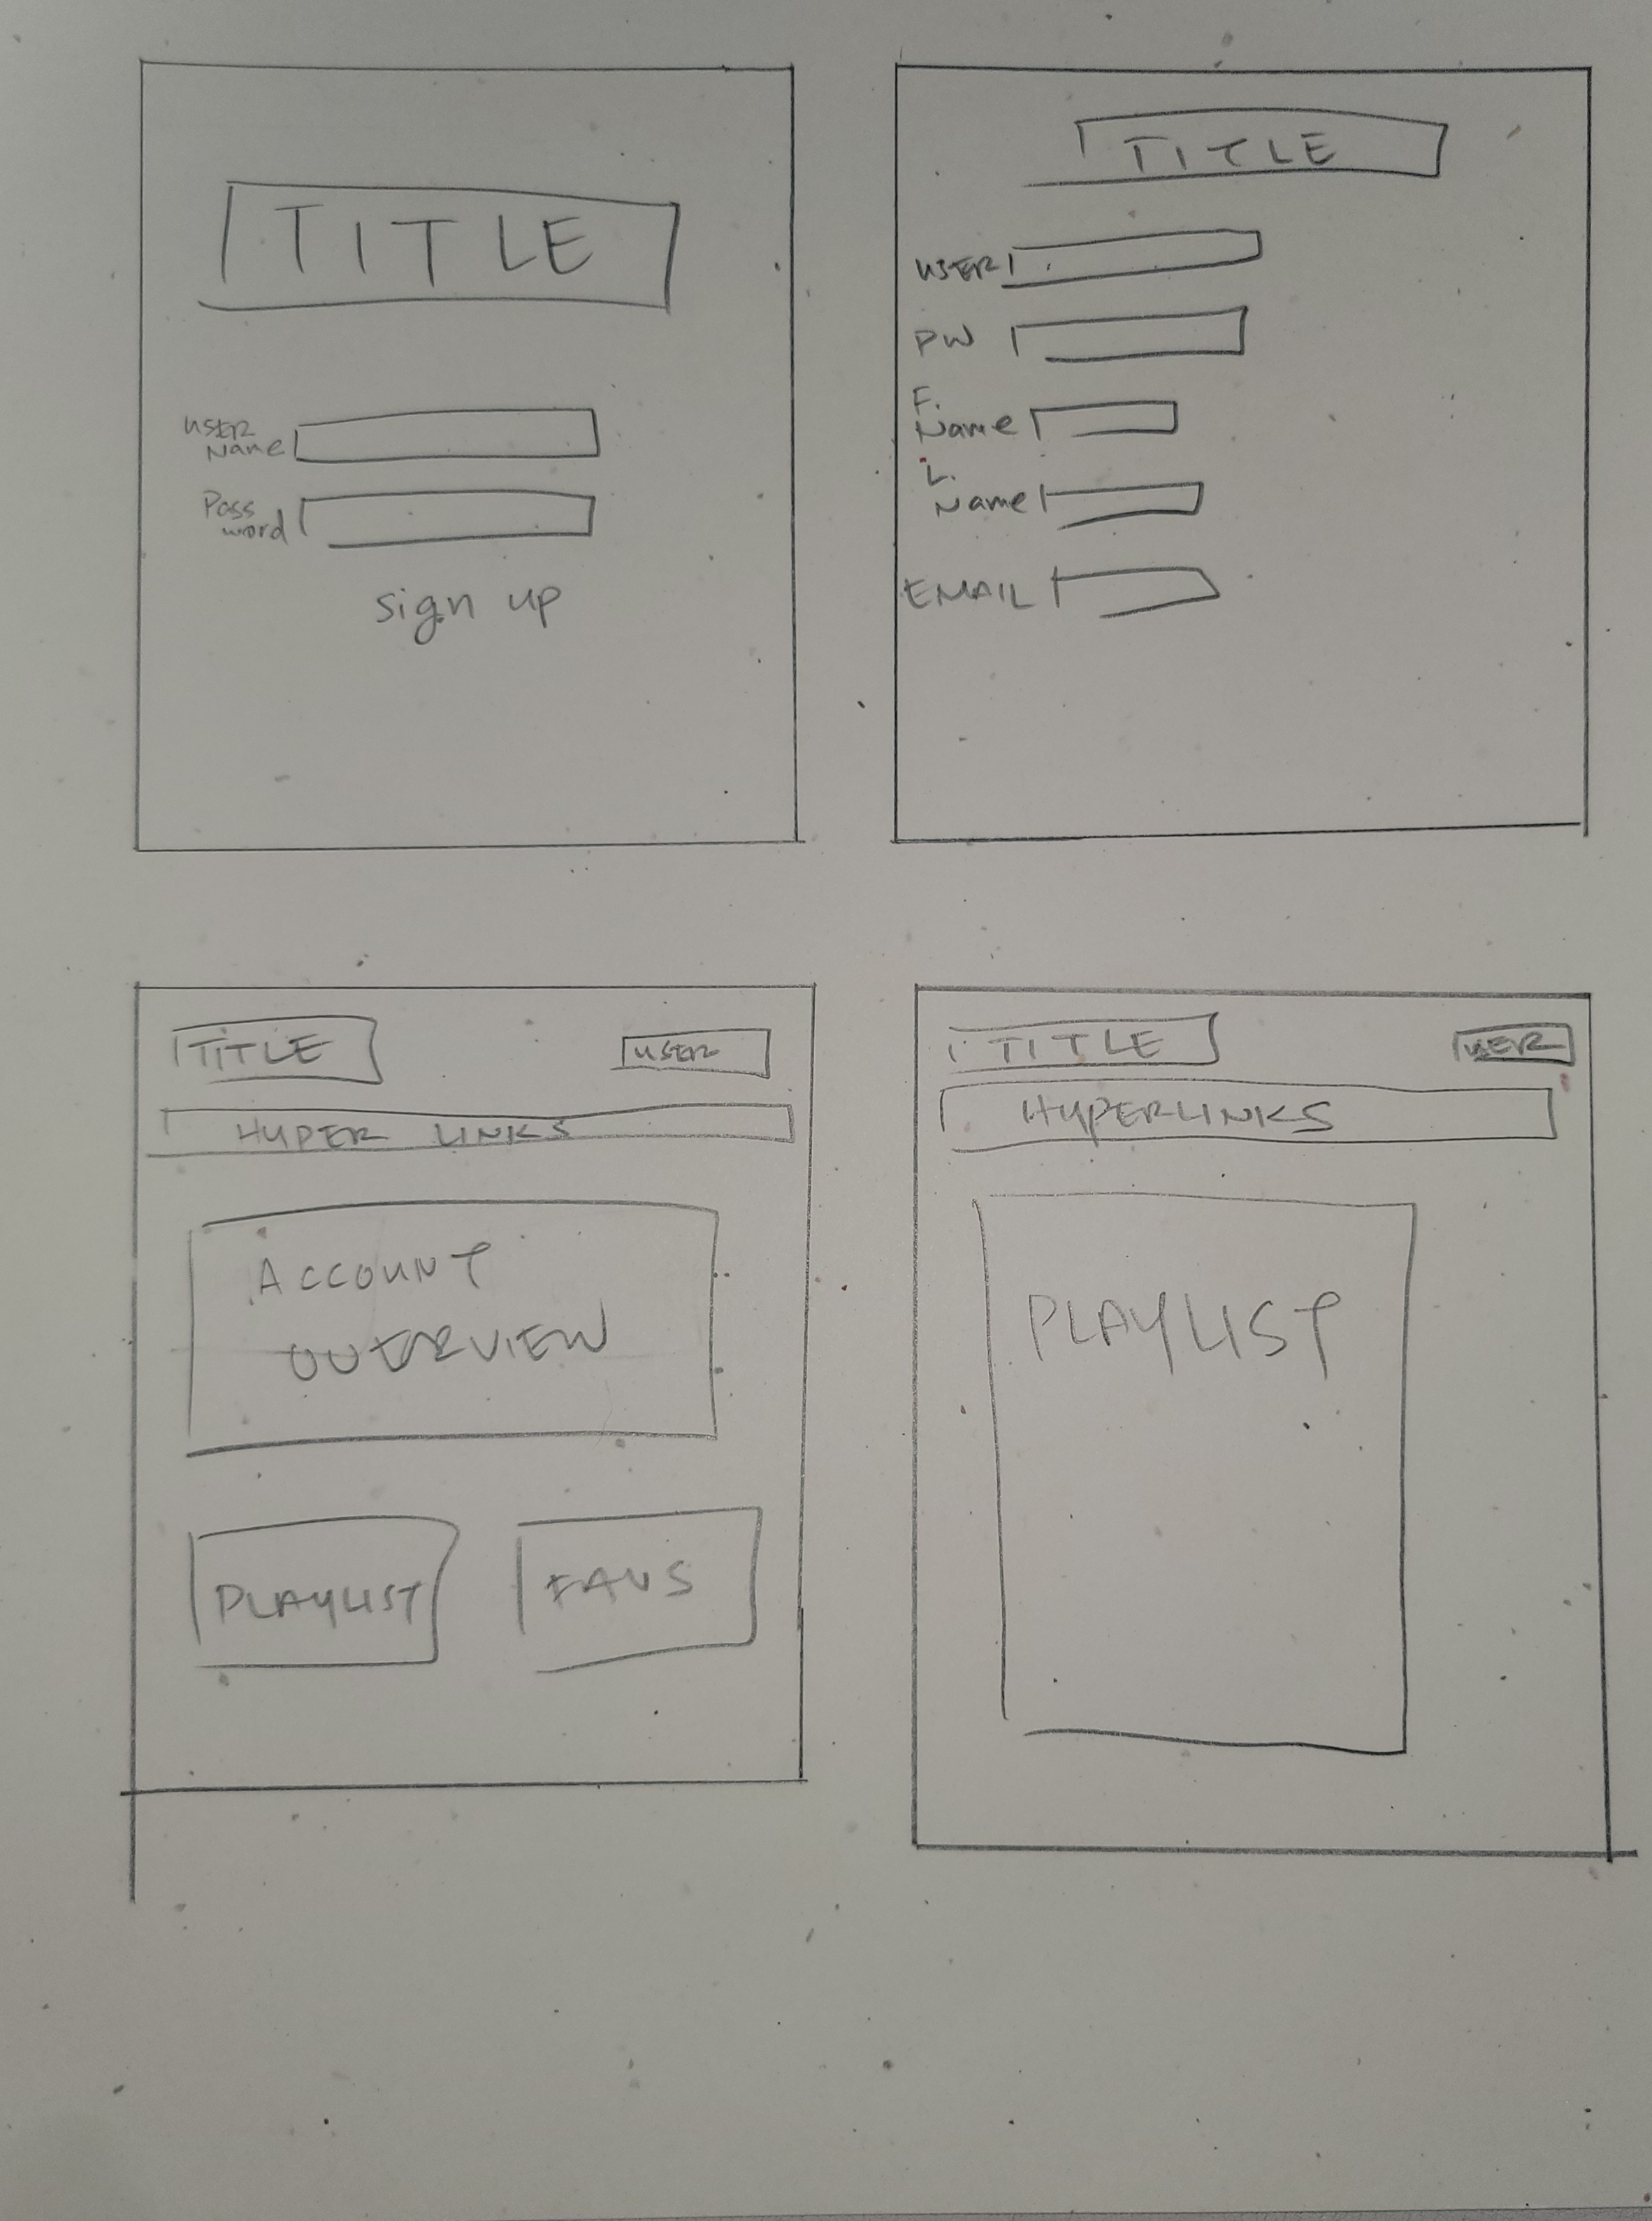 TITLE
USER
Name
Pass
word
sign up
TITLE
USER
PW
F.
Name
L.
Name
EMAIL
TITLE
USER
HYPER LINKS
ACCOUNT
OVERVIEW
PLAYLIST
FAVS
TITLE
USER
HYPERLINKS
PLAYLIST